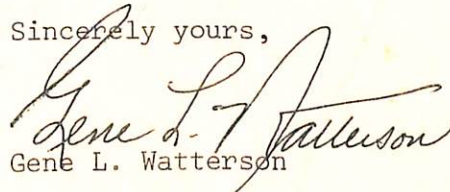 Sincerely yours,
Gene L. Watterson
Gene L. Watterson